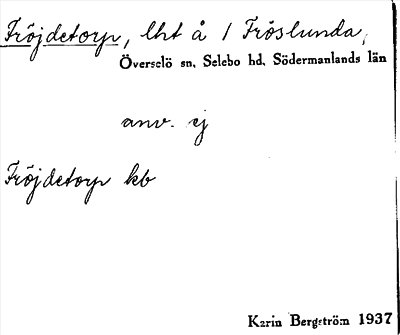 Fröjdetorp, lht å 1 Fröslunda,
Överselö sn, Selebo hd, Södermanlands län
anv. ej
Fröjdetorp kb
Karin Bergström 1937